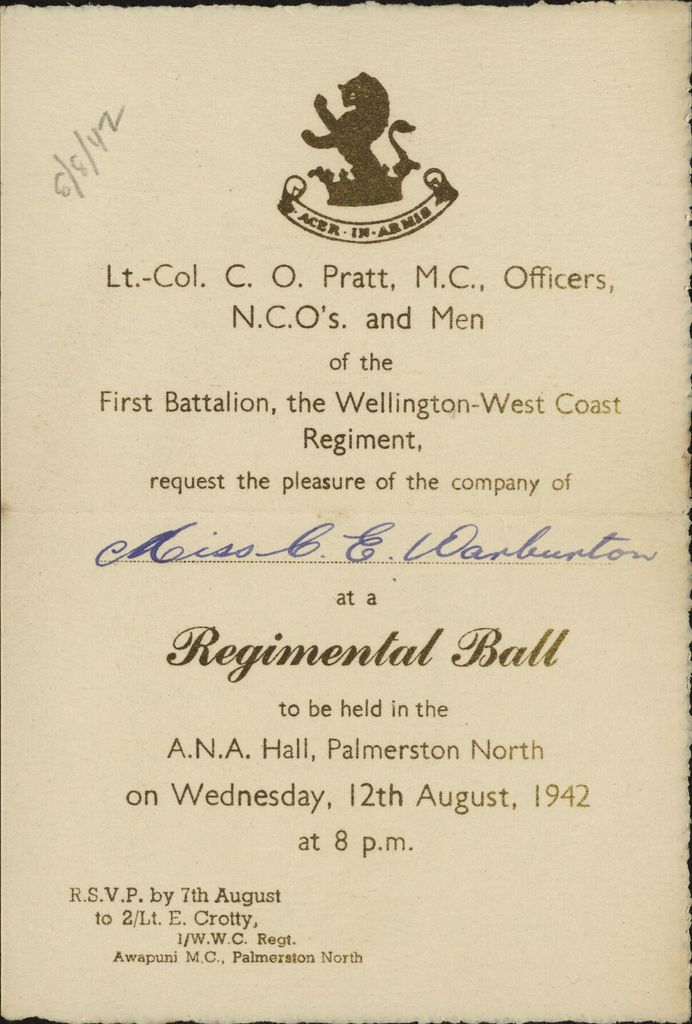 3/8/42
ACER·IN·ARMIS
Lt.-Col. C. O. Pratt, M.C., Officers,
N.C.O's. and Men
of the
First Battalion, the Wellington-West Coast
Regiment,
request the pleasure of the company of
Miss C. E. Warburton
at a
Regimental Ball
to be held in the
A.N.A. Hall, Palmerston North
on Wednesday, 12th August, 1942
at 8 p.m.
R.S.V.P. by 7th August
to 2/Lt. E. Crotty,
1/W.W.C. Regt.
Awapuni M.C., Palmerston North